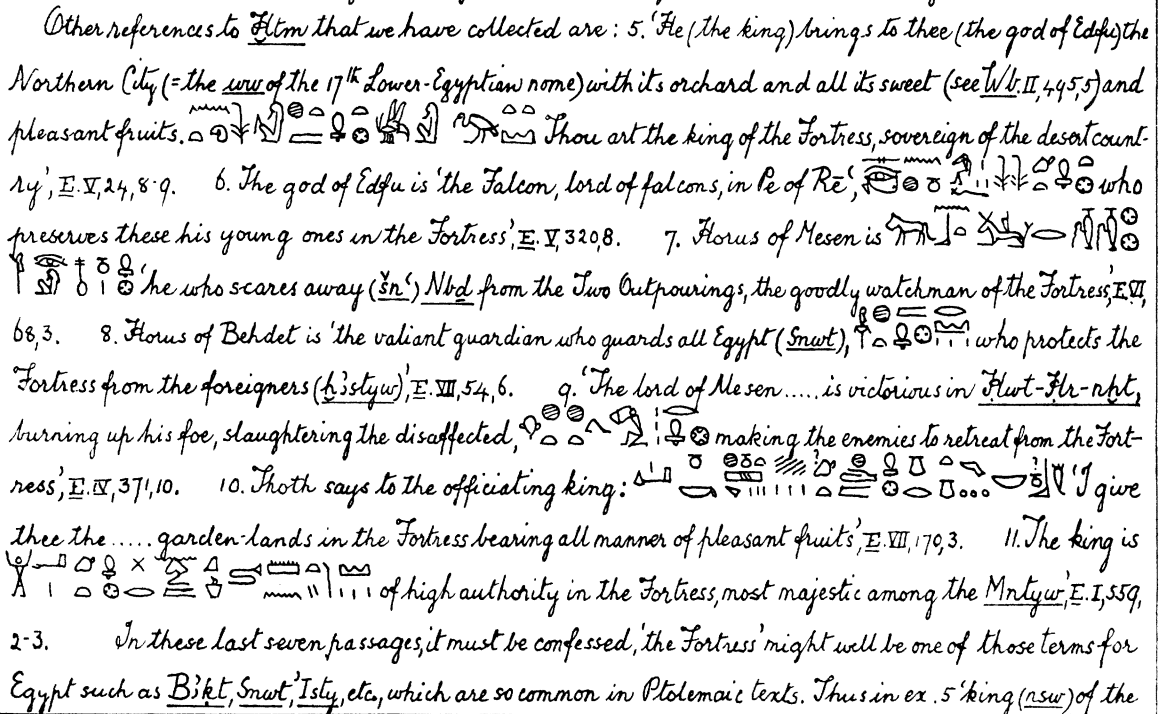 Other references to Ḫtm that we have collected are : 5. ‘He (the king) brings to thee (the god of Edfu) the
Northern City (= the ww of the 17th Lower-Egyptian nome) with its orchard and all its sweet (see Wb. II, 495,5) and
pleasant fruits. Thou art the king of the Fortress, sovereign of the desert count-
ry’, E. V, 24, 8-9. 6. The god of Edfu is ‘the Falcon, lord of falcons, in Pe of Rē‘, who
preserves these his young ones in the Fortress’, E. V, 320,8. 7. Horus of Mesen is
‘he who scares away (šn‘) Nbḏ from the Two Outpourings, the goodly watchman of the Fortress’, E. VI,
68,3. 8. Horus of Behdet is ‘the valiant guardian who guards all Egypt (Snwt), who protects the
Fortress from the foreigners (ḫꜣstyw)’, E. VII, 54, 6. 9. ‘The lord of Mesen ..... is victorious in Ḥwt-Ḥr-nḫt,
burning up his foe, slaughtering the disaffected, making the enemies to retreat from the Fort-
ress’, E. IV, 371,10. 10. Thoth says to the officiating king: ‘I give
thee the ..... garden-lands in the Fortress bearing all manner of pleasant fruits’, E. VII, 170,3. 11. The king is
of high authority in the Fortress, most majestic among the Mntyw’, E. I, 559,
2-3. In these last seven passages, it must be confessed, ‘the Fortress’ might well be one of those terms for
Egypt such as Bꜣḳt, Snwt, ’Isty, etc., which are so common in Ptolemaic texts. Thus in ex. 5 ‘king (nsw) of the